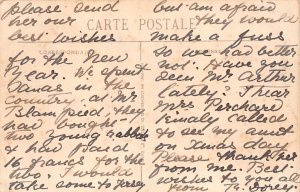 Please send
her our
best wishes
for the New
Year. We spent
Xmas in the
country, at Mr
they
had bought
two young rabbits
& had paid
16 francs for the
two. I would
take some to Jersey
CARTE POSTALE
but am afraid
they would
make a fuss
so we had better
not. Have you
seen Mr Arthur
lately? I hear
Mrs Perchard
kindly called
to see my aunt
on Xmas day
Please thank her
from me. Best
wishes to you all
from